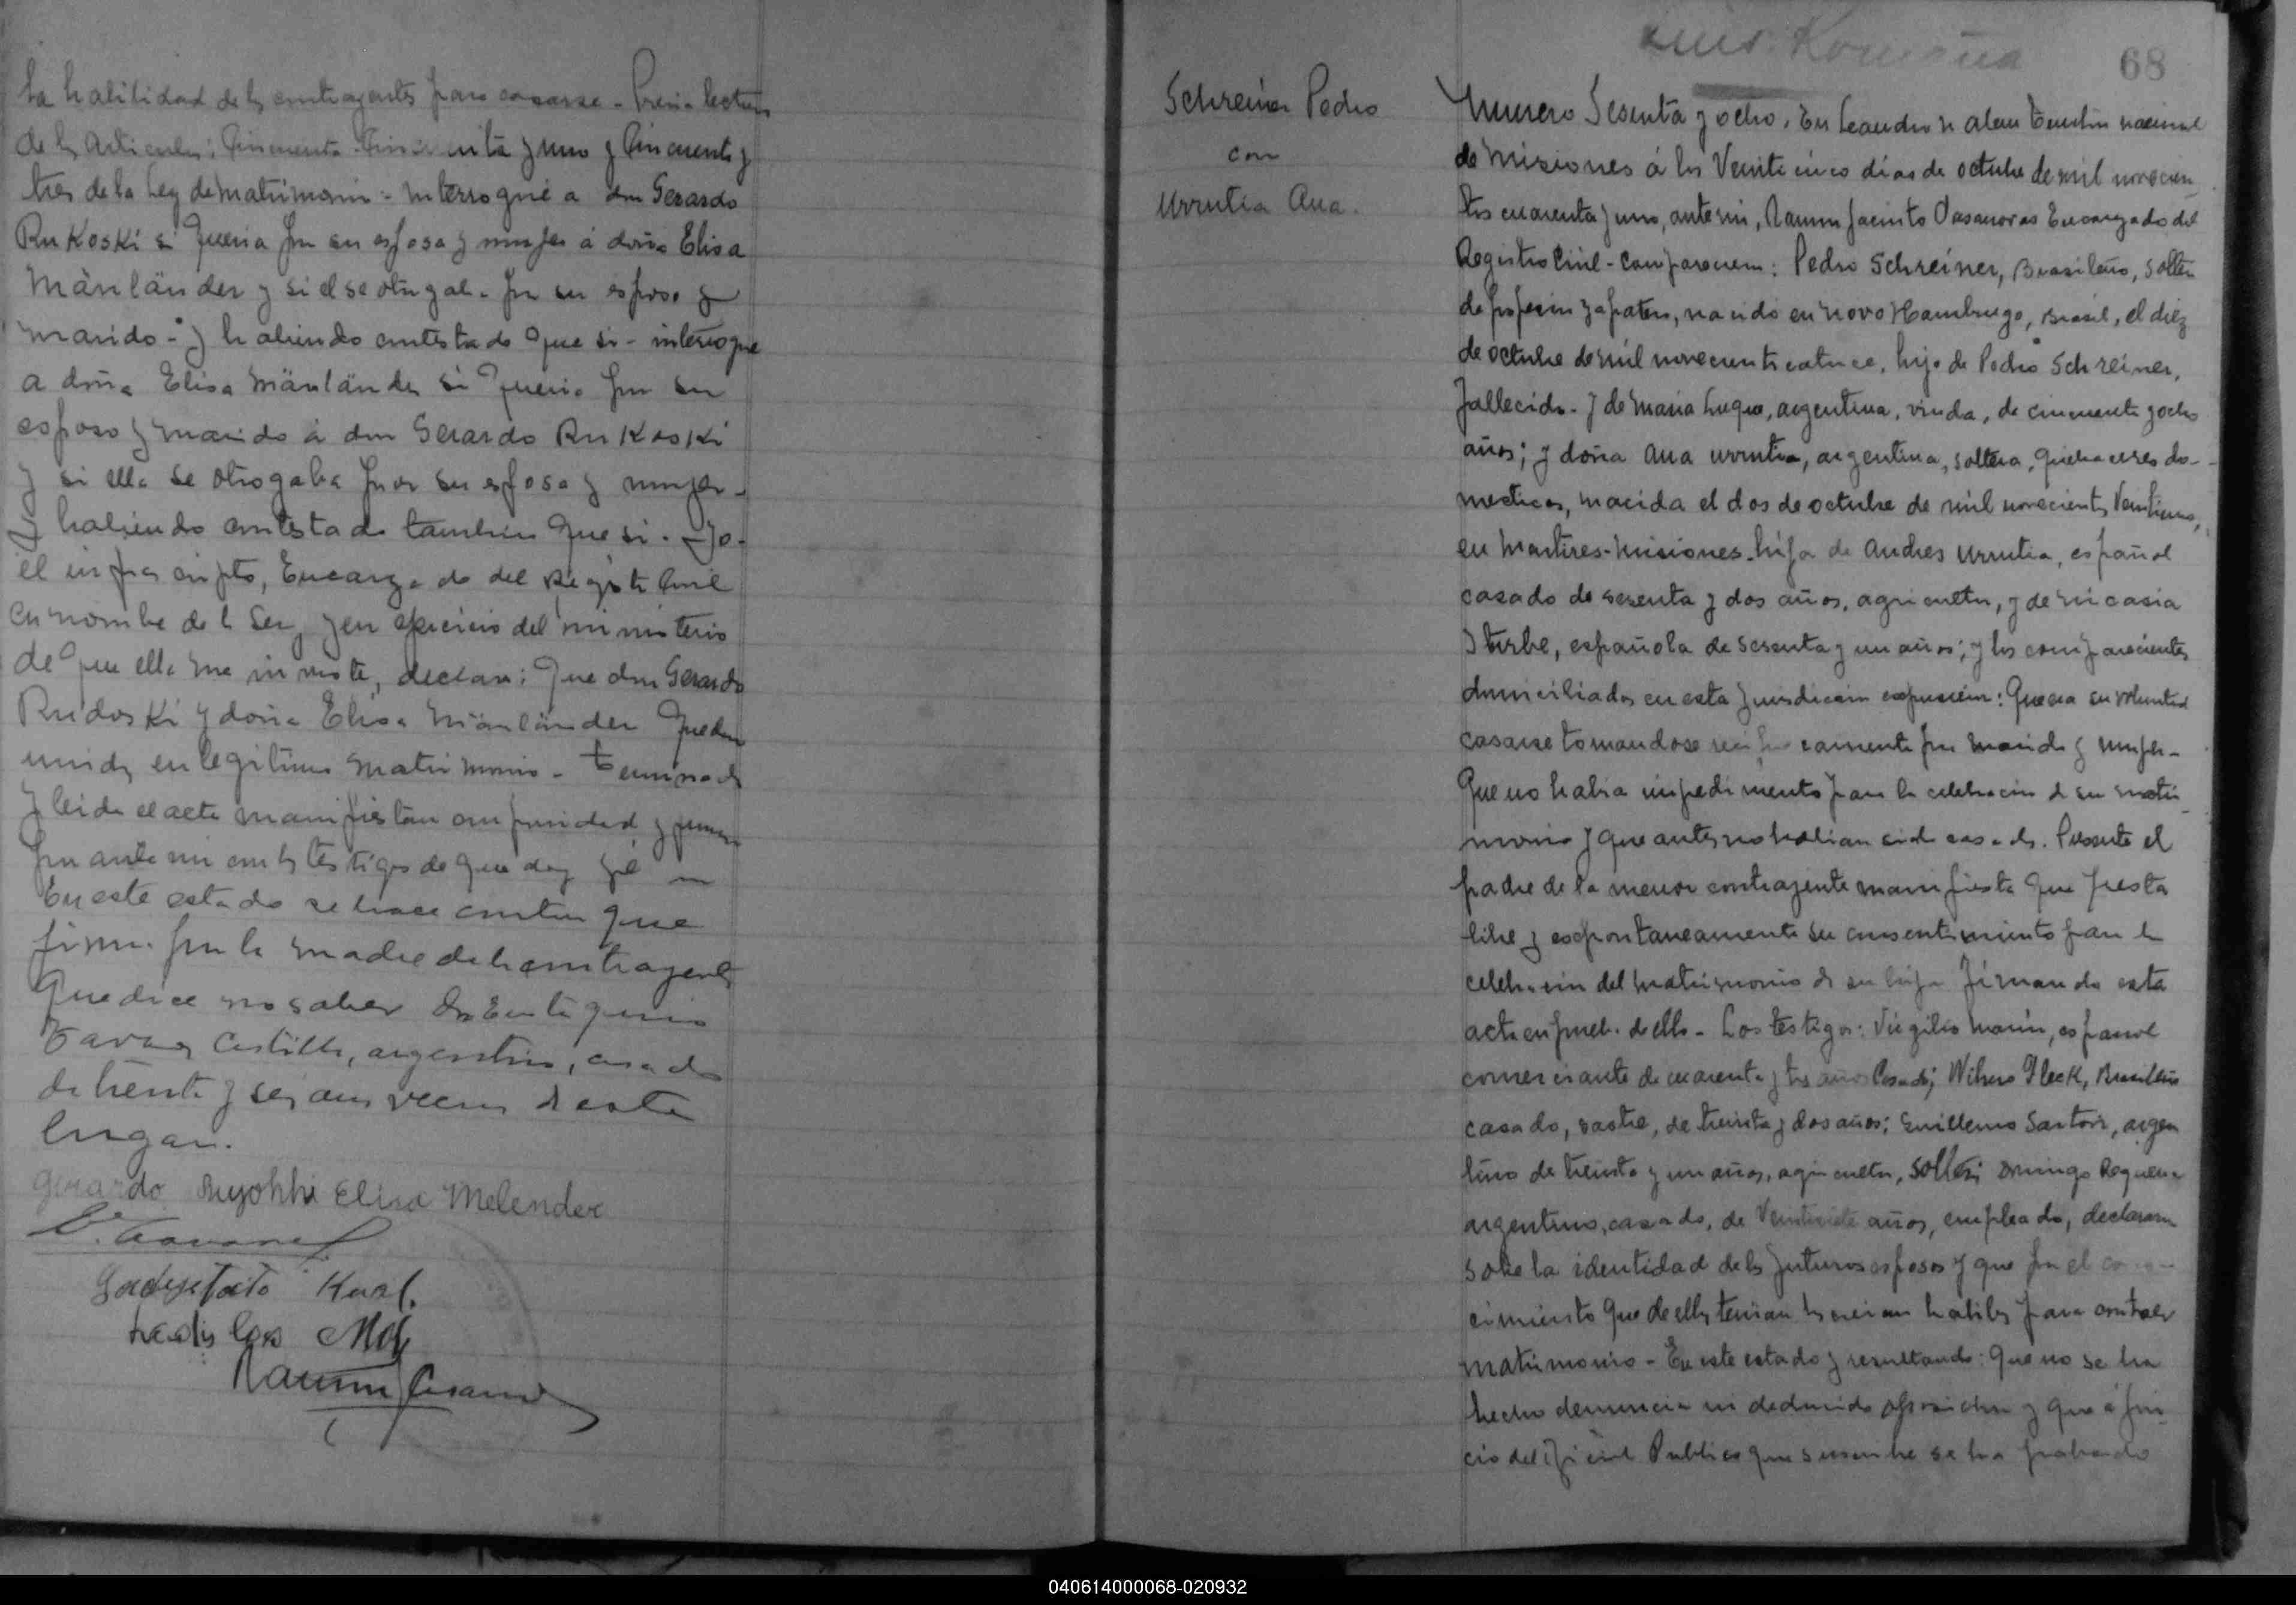 la habilidad de los contrayentes para casarse - Previa lectura
de los Articulos: Cincuenta Cincuenta y uno y Cincuenta y
tres de la Ley de Matrimonio - interrogué a don Gerardo
RuKosKi si queria por su esposa y mujer á doña Elisa
Mänländer y si el se otorgaba por su esposo y
marido - Y habiendo contestado que si - interrogue
a doña Elisa Mänländer si queria por su
esposo y marido á don Gerardo RuKosKi
y si ella se otrogaba por su esposa y mujer -
Y habiendo contestado tambien que si - Yo -
el infrascripto, Encargado del Registro Civil
en nombre de la Ley y en ejercicio del ministerio
de que ella me inviste, declaro: que don Gerardo
RudosKi y doña Elisa Mänländer quedan
unidos en legitimo matrimonio - Terminada
y leida el acta manifiestan conformidad y firman
por ante mi con los testigos de que doy fé
En este estado se hace constar que
firma por la madre de la contrayente
que dice no saber Don
Castillo, argentino, casado
de treinta y seis años vecino de este
lugar.
Gerardo Elisa Melender
Karl.
Ramon J Casanovas
68
Schreiner Pedro
con
Urrutia Ana.
Numero Sesenta y ocho. En Leandro N Alem Territorio nacional
de Misiones á los Veinticinco dias de octubre de mil novecien
tos cuarenta y uno, ante mi, Ramon Jacinto Casanovas Encargado del
Registro Civil - Comparecen: Pedro Schreiner, Brasileño, soltero
de profesion zapatero, nacido en Novo Hamburgo, Brasil, el diez
de octubre de mil novecientos catorce, hijo de Pedro Schreiner,
fallecido - y de Maria Luque, argentina, viuda, de cincuenta y ocho
años; y doña Ana Urrutia, argentina, soltera, quehaceres do-
mesticos, nacida el dos de octubre de mil novecientos Veintiuno,
en Martires - Misiones - hija de Andres Urrutia, español
casado de sesenta y dos años, agricultor, y de Nicasia
Yturbe, española de sesenta y un años; y los comparecientes
domiciliados en esta jurisdiccion expusieron: Que era su voluntad
casarse tomandose reciprocamente por marido y mujer -
Que no habia impedimento para la celebracion de su matri
monio y que antes no habian sido casados. Presente el
padre de la menor contrayente manifiesta que presta
libre y espontaneamente su consentimiento para la
celebracion del matrimonio de su hija firmando esta
acta en prueba de ello - Los testigos: Virgilio Marin, español
comerciante de cuarenta y tres años Casado; Fleck, Brasileño
casado, sastre, de treinta y dos años; Guillermo Sartori, argen
tino de treinta y un años, agricultor, soltero; Domingo Requena
argentino, casado, de Veintisiete años, empleado, declararon
sobre la identidad de los futuros esposos y que por el cono-
cimiento que de ellos tenian los creian habiles para contraer
matrimonio - En este estado y resultando: Que no se ha
hecho denuncia ni deducido oposicion y que á jui
cio del Oficial Publico que suscribe se ha probado
040614000068-020932